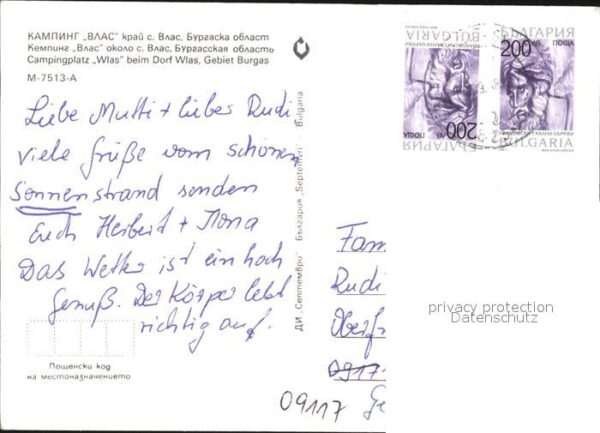 КАМПИНГ „ВЛАС" край с. Влас, Бургаска област
Кемпинг „Влас" около с. Влас, Бургасская область
Campingplatz „Wlas" beim Dorf Wlas, Gebiet Burgas
М-7513-А
Liebe Mutti + lieber Rudi
viele Grüße vom schönen
Sonnenstrand senden
Euch Herbert + Ilona
Das Wetter ist ein hoch
Genuß. Der Körper lebt
richtig auf.
Пощенски код
на местоназначението
ДИ „Септември" България „Septemvri" Bulgaria
БЪЛГАРИЯ
200 ЛВ ПОЩА
BULGARIA
БЪЛГАРИЯ
200 ЛВ ПОЩА
BULGARIA
Fam
Rudi
Oberfr
0917
09117
Ge
privacy protection
Datenschutz